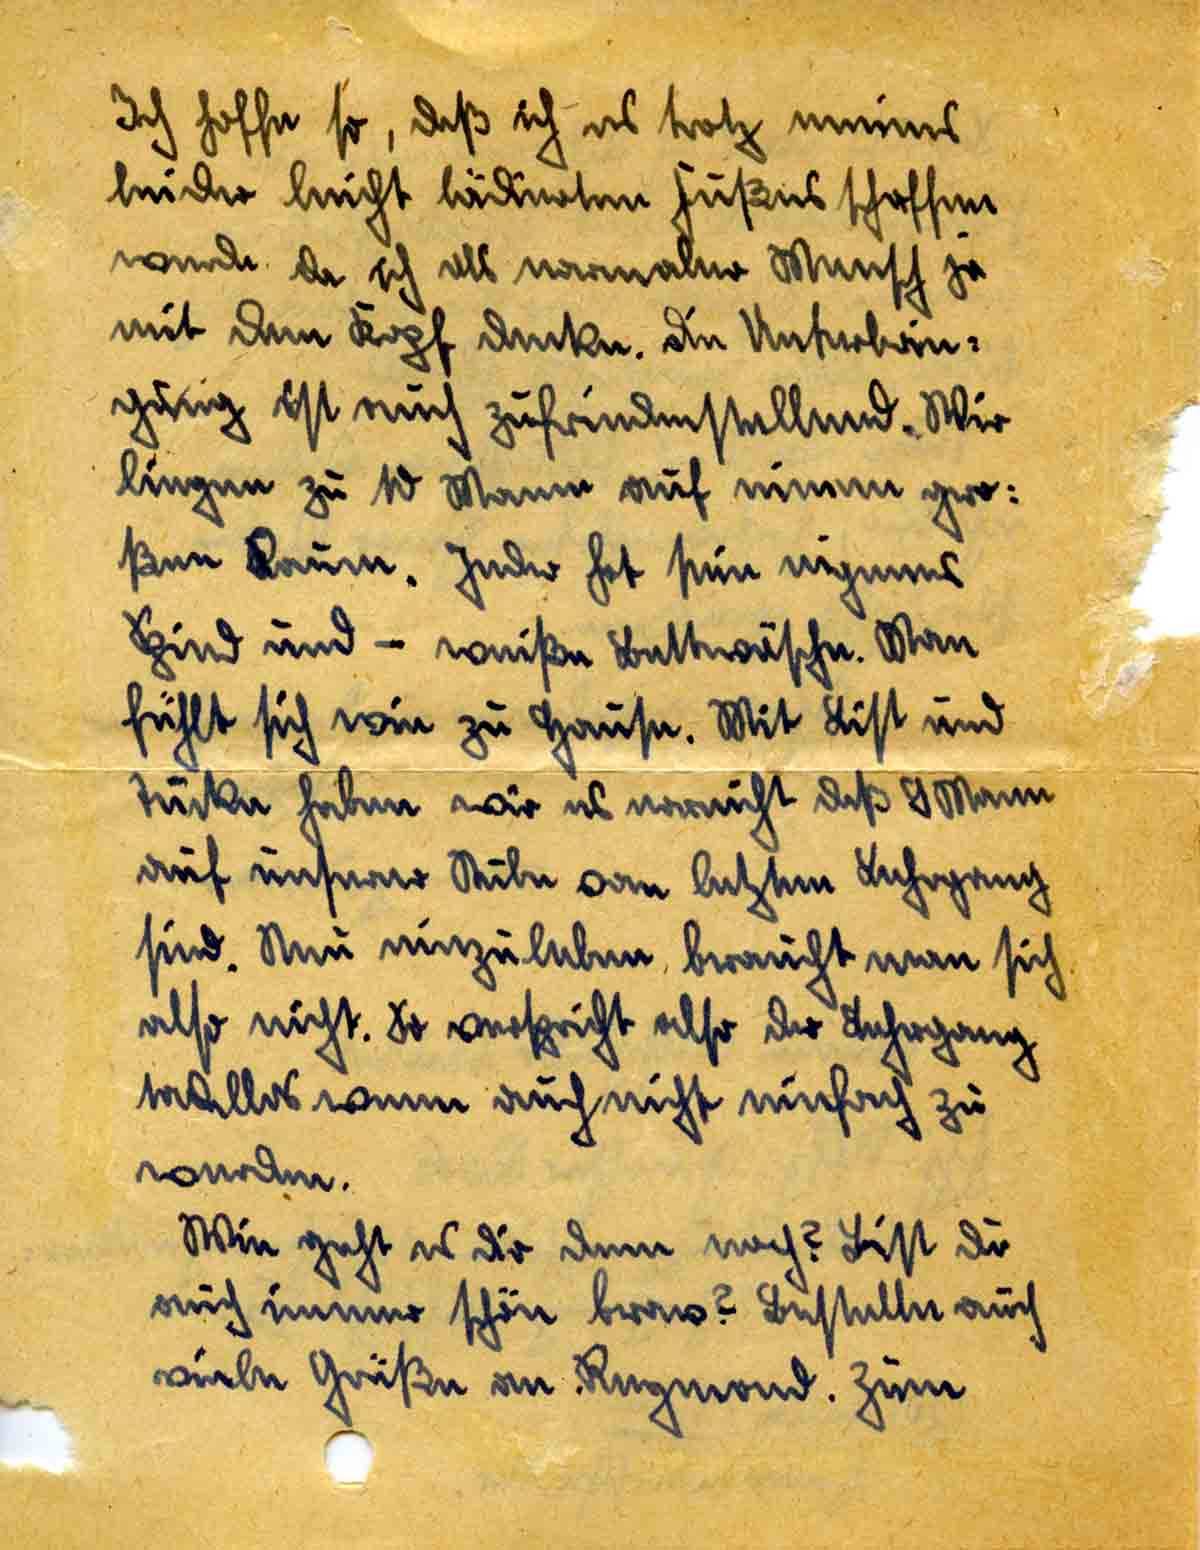 Ich hoffe so, daß ich es trotz meines
leider leicht lädierten Fußes schaffen
werde. da ich als normaler Mensch ja
mit dem Kopf denke. Die Unterbrin=
gung ist auch zufriedenstellend. Wir
liegen zu 10 Mann auf einem gro=
ßen Raum. Jeder hat sein eigenes
Spind und – weiße Bettwäsche. Man
fühlt sich wie zu Hause. Mit List und
Tücke haben wir es erreicht daß 8 Mann
auf unserer Stube vom letzten Lehrgang
sind. Neu einzuleben braucht man sich
also nicht. So verspricht also der Lehrgang
tadellos wenn auch nicht einfach zu
werden.
Wie geht es dir denn noch? Bist du
auch immer schön brav? Bestelle auch
viele Grüße an Regmond. Zum